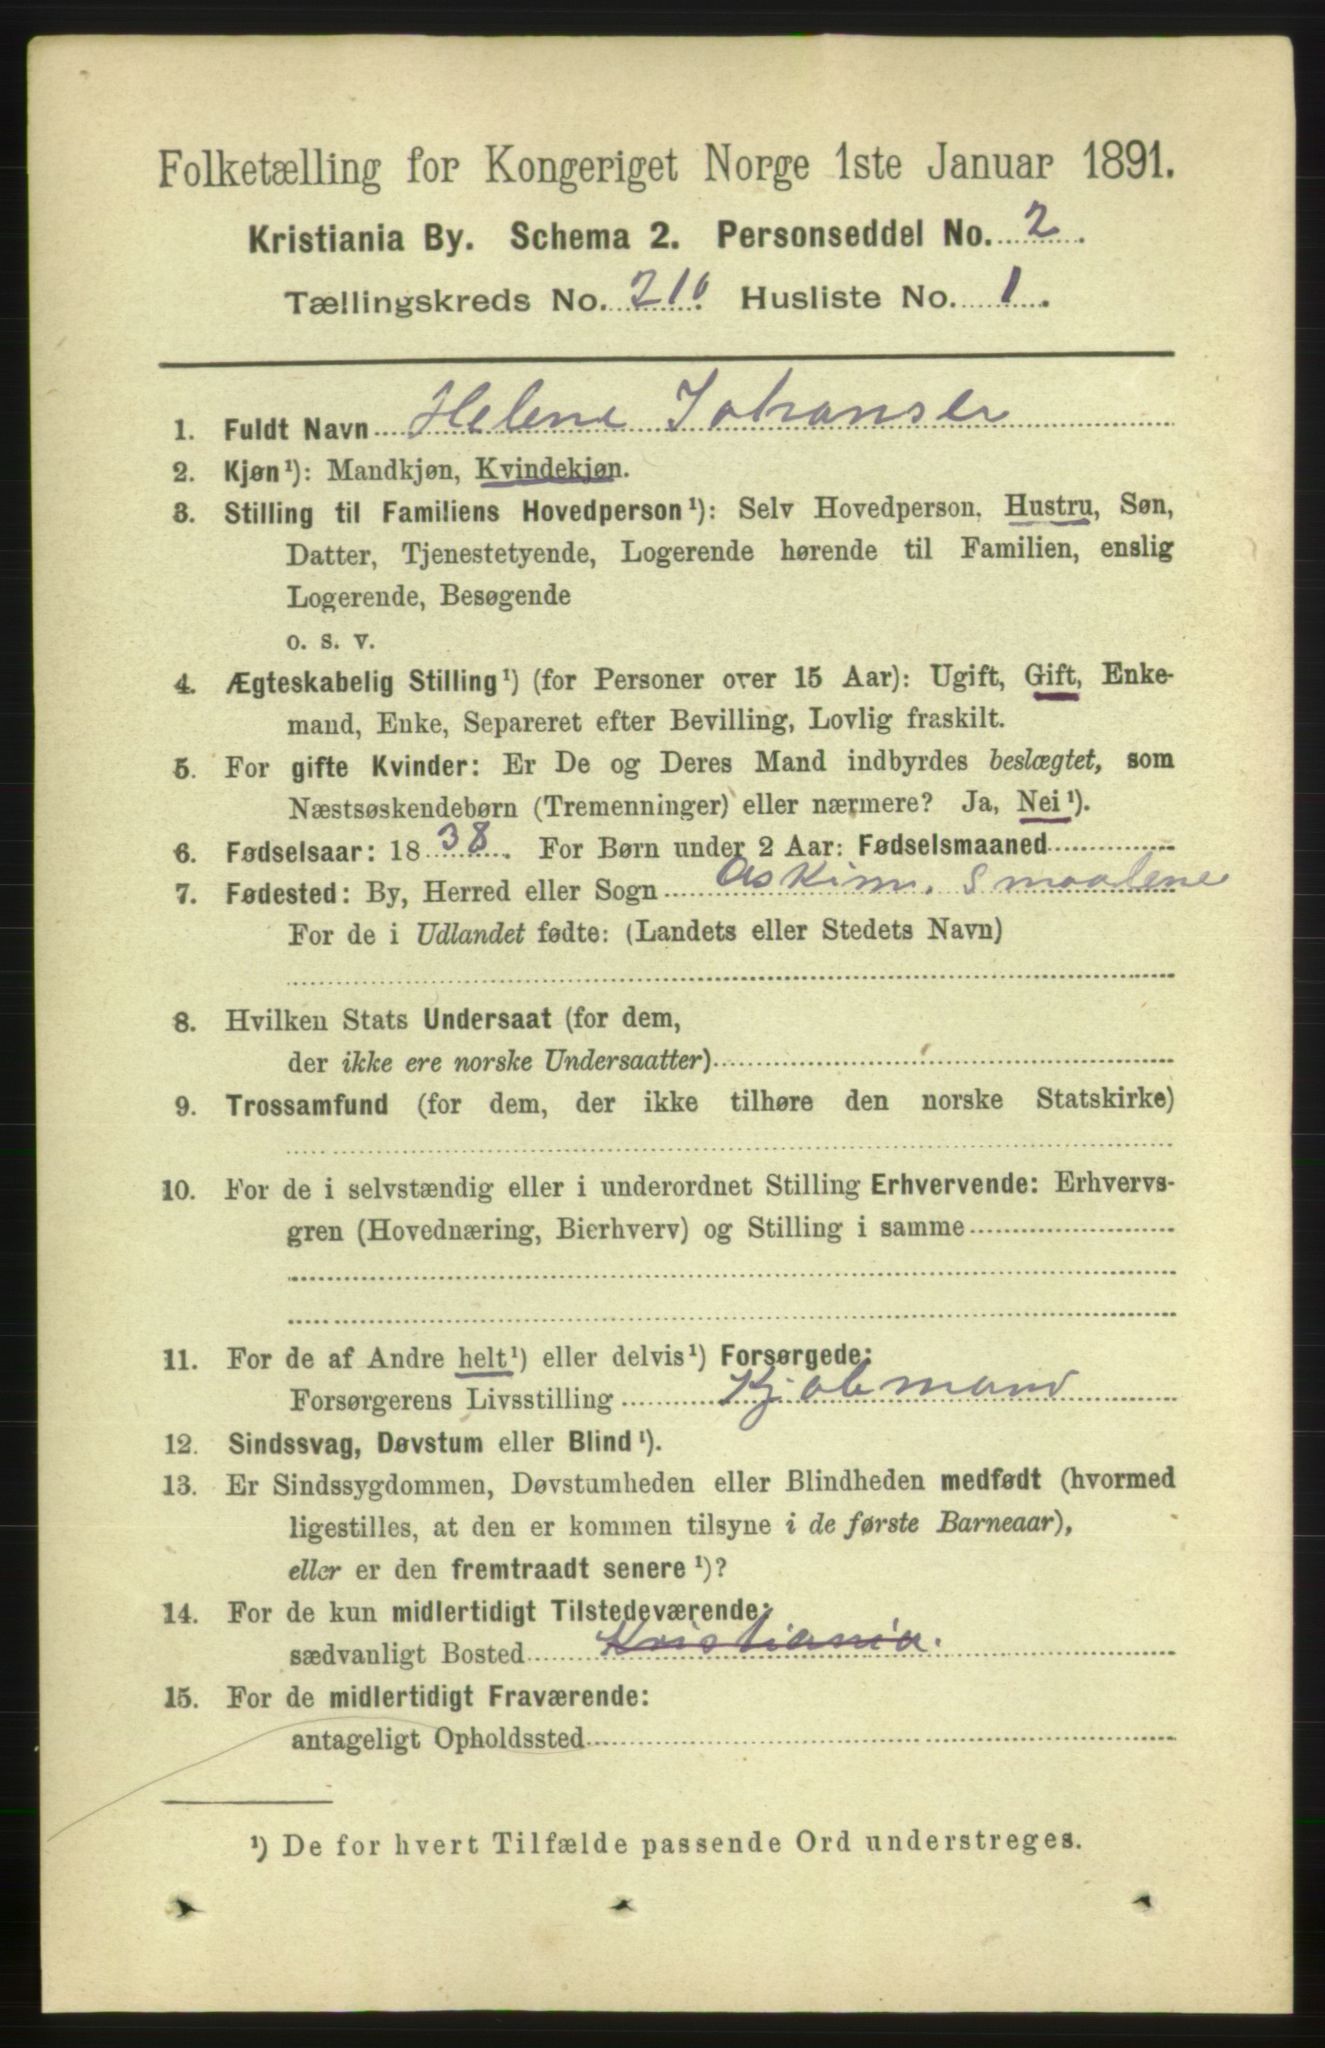 Folketælling for Kongeriget Norge 1ste Januar 1891.
Kristiania By. Schema 2. Personseddel No. 2.
Tællingskreds No. 210 Husliste No. 1.
1. Fuldt Navn Helene Johansen
2. Kjøn¹): Mandkjøn, Kvindekjøn.
3. Stilling til Familiens Hovedperson¹): Selv Hovedperson, Hustru, Søn,
Datter, Tjenestetyende, Logerende hørende til Familien, enslig
Logerende, Besøgende
o. s. v.
4. Ægteskabelig Stilling¹) (for Personer over 15 Aar): Ugift, Gift, Enke-
mand, Enke, Separeret efter Bevilling, Lovlig fraskilt.
5. For gifte Kvinder: Er De og Deres Mand indbyrdes beslægtet, som
Næstsøskendebørn (Tremenninger) eller nærmere? Ja, Nei¹).
6. Fødselsaar: 1838. For Børn under 2 Aar: Fødselsmaaned
7. Fødested: By, Herred eller Sogn Askim, Smaalene
For de i Udlandet fødte: (Landets eller Stedets Navn)
8. Hvilken Stats Undersaat (for dem,
der ikke ere norske Undersaatter)
9. Trossamfund (for dem, der ikke tilhøre den norske Statskirke)
10. For de i selvstændig eller i underordnet Stilling Erhvervende: Erhvervs-
gren (Hovednæring, Bierhverv) og Stilling i samme
11. For de af Andre helt¹) eller delvis¹) Forsørgede:
Forsørgerens Livsstilling Kjøbmand
12. Sindssvag, Døvstum eller Blind¹).
13. Er Sindssygdommen, Døvstumheden eller Blindheden medfødt (hvormed
ligestilles, at den er kommen tilsyne i de første Barneaar),
eller er den fremtraadt senere¹)?
14. For de kun midlertidigt Tilstedeværende:
sædvanligt Bosted Kristiania.
15. For de midlertidigt Fraværende:
antageligt Opholdssted
¹) De for hvert Tilfælde passende Ord understreges.